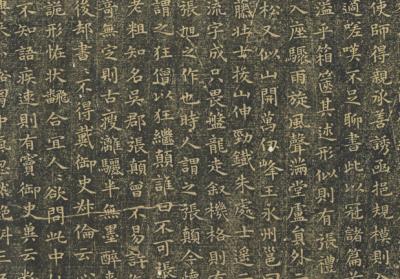 使師得親承善誘函挹規模則
適嗟嘆不足聊書此以冠諸篇
溢乎箱篋其述形似則有張禮
入座驟雨旋風聲滿堂盧員外
松又似山開萬仞峰王永州邕曰
藤壯士拔山伸勁鐵朱處士遙
流字成只畏盤龍走敘機格則有
張旭之作也時人謂之張顛今懷
謂之狂僧以狂繼顛誰曰不可
老粗知名吳郡張顛曾不易許
奇無定則古瘦灕驪半無墨醉
後却書書不得戴御史叔倫云
詭形怪狀翻合宜人人欲問此中
不知語疾速則有竇御史冀云